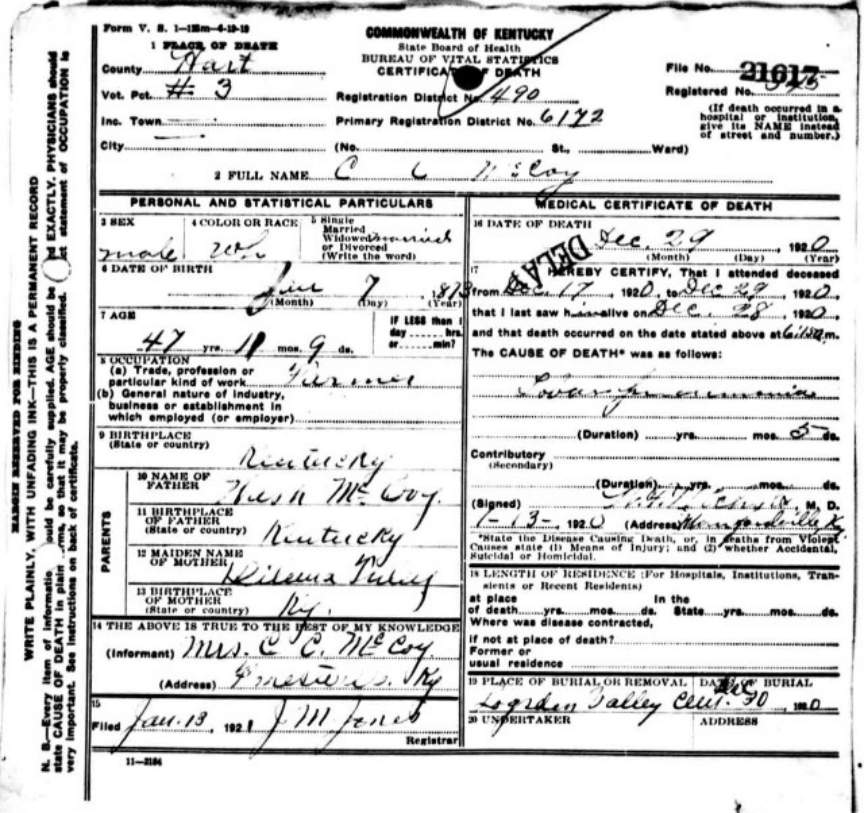 Form V. S. 1-125m-6-19-19
COMMONWEALTH OF KENTUCKY
State Board of Health
BUREAU OF VITAL STATISTICS
CERTIFICATE OF DEATH
1 PLACE OF DEATH
County Hart
Vot. Pct. # 3
Inc. Town
City
Registration District No. 490
Primary Registration District No. 6172
(No. St., Ward)
File No. 21617
Registered No.
(If death occurred in a
hospital or institution,
give its NAME instead
of street and number.)
2 FULL NAME C C McCoy
PERSONAL AND STATISTICAL PARTICULARS
3 SEX
male
4 COLOR OR RACE
Wh
5 Single
Married
Widowed married
or Divorced
(Write the word)
6 DATE OF BIRTH
Jan 7, 1873
(Month) (Day) (Year)
7 AGE
47 yrs. 11 mos. 9 ds.
IF LESS than 1
day hrs.
or min?
8 OCCUPATION
(a) Trade, profession or
particular kind of work Farmer
(b) General nature of industry,
business or establishment in
which employed (or employer)
9 BIRTHPLACE
(State or country)
Kentucky
PARENTS
10 NAME OF
FATHER
Hush McCoy
11 BIRTHPLACE
OF FATHER
(State or country) Kentucky
12 MAIDEN NAME
OF MOTHER
13 BIRTHPLACE
OF MOTHER
(State or country) Ky.
14 THE ABOVE IS TRUE TO THE BEST OF MY KNOWLEDGE
(Informant) Mrs. C C. McCoy
(Address) Ky
15
Filed Jan. 13, 1921 J M Jones
Registrar
11-2184
MEDICAL CERTIFICATE OF DEATH
16 DATE OF DEATH
Dec. 29, 1920
(Month) (Day) (Year)
DELAY
17 HEREBY CERTIFY, That I attended deceased
from Dec. 17, 1920, to Dec 29, 1920,
that I last saw him alive on Dec. 28, 1920,
and that death occurred on the date stated above at 6: m.
The CAUSE OF DEATH* was as follows:
(Duration) yrs. mos. 5 ds.
Contributory
(Secondary)
(Duration) yrs. mos. ds.
(Signed) M. D.
1-13-, 1920 (Address) Munfordville Ky
*State the Disease Causing Death, or, in deaths from Violent
Causes state (1) Means of Injury; and (2) whether Accidental,
Suicidal or Homicidal.
18 LENGTH OF RESIDENCE (For Hospitals, Institutions, Tran-
sients or Recent Residents)
at place In the
of death yrs. mos. ds. State yrs. mos. ds.
Where was disease contracted,
if not at place of death?
Former or
usual residence
19 PLACE OF BURIAL OR REMOVAL DATE OF BURIAL
Logsdon Valley Cem. Dec 30, 1920
20 UNDERTAKER ADDRESS
MARGIN RESERVED FOR BINDING
WRITE PLAINLY, WITH UNFADING INK—THIS IS A PERMANENT RECORD
N. B.—Every item of informatio ould be carefully supplied. AGE should be ed EXACTLY. PHYSICIANS should
state CAUSE OF DEATH in plain rms, so that it may be properly classified. ct statement of OCCUPATION is
very important. See instructions on back of certificate.